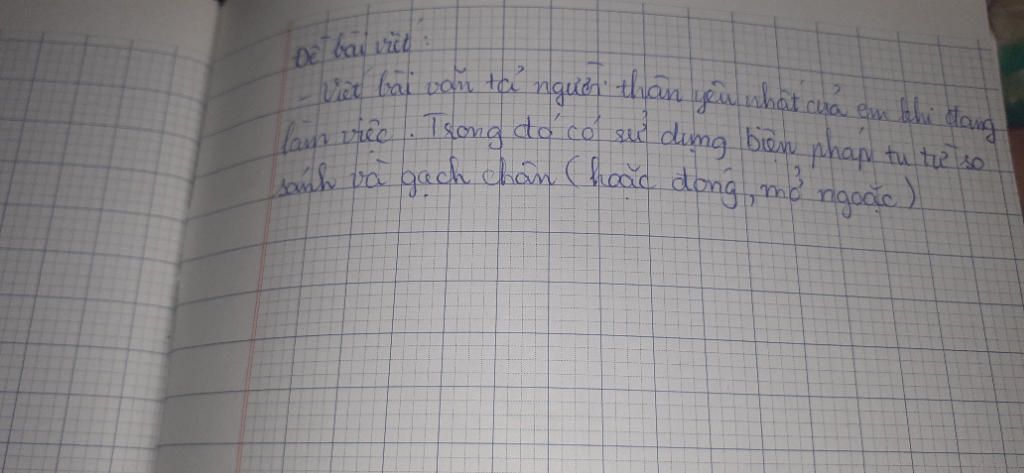 Đề bài viết:
- Viết bài văn tả người thân yêu nhất của em khi đang
làm việc. Trong đó có sử dụng biện pháp tu từ so
sánh và gạch chân (hoặc đóng, mở ngoặc)